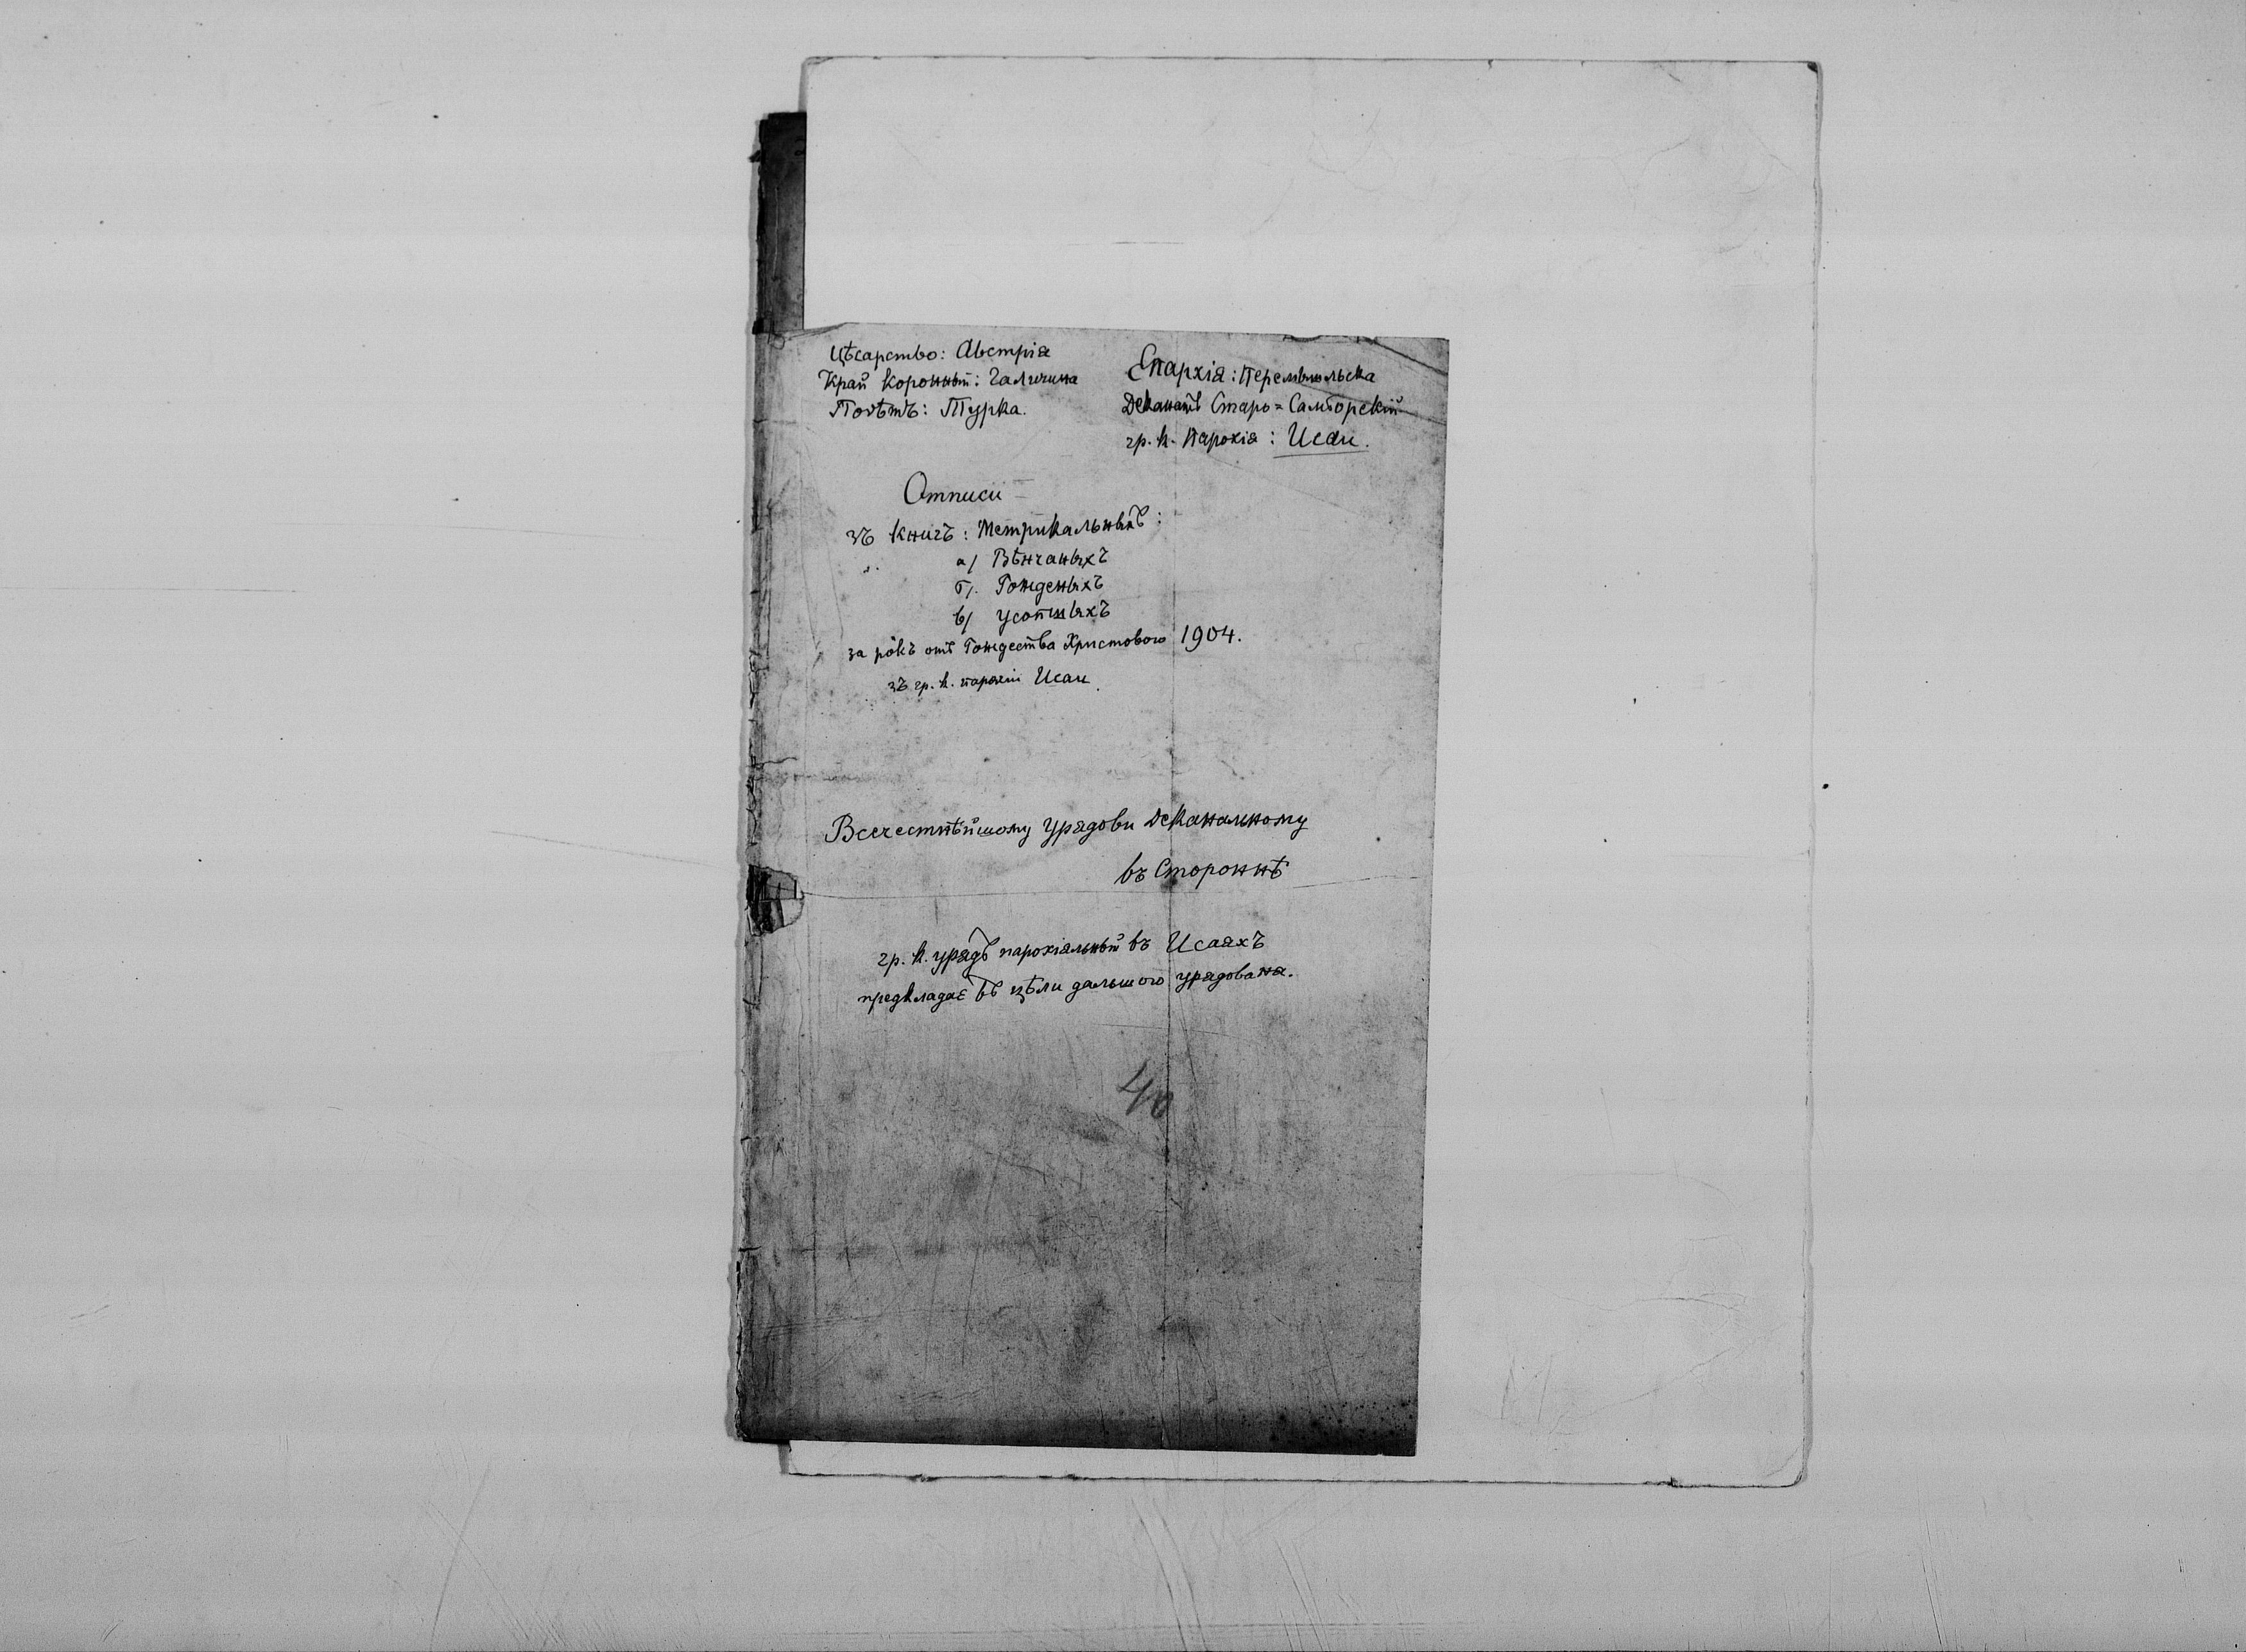 Цѣсарство: Австрія
Край Коронный: Галичина
Повѣтъ: Турка.
Епархія: Перемышльска
Деканатъ Старо=Самборскій
гр. к. Парохія: Исаи.
Отписи
зъ Книгъ: Метрикальныхъ:
а/ Вѣнчаныхъ
б/. Рожденыхъ
в/ Усопшыхъ
за рôкъ отъ Рождества Христового 1904.
зъ гр. к. парохіи Исаи
Всечестнѣйшому Урядови Деканальному
въ Стороннѣ
гр. к. урядъ парохіяльный въ Исаяхъ
предкладає въ цѣли дальшого урядованя.
40